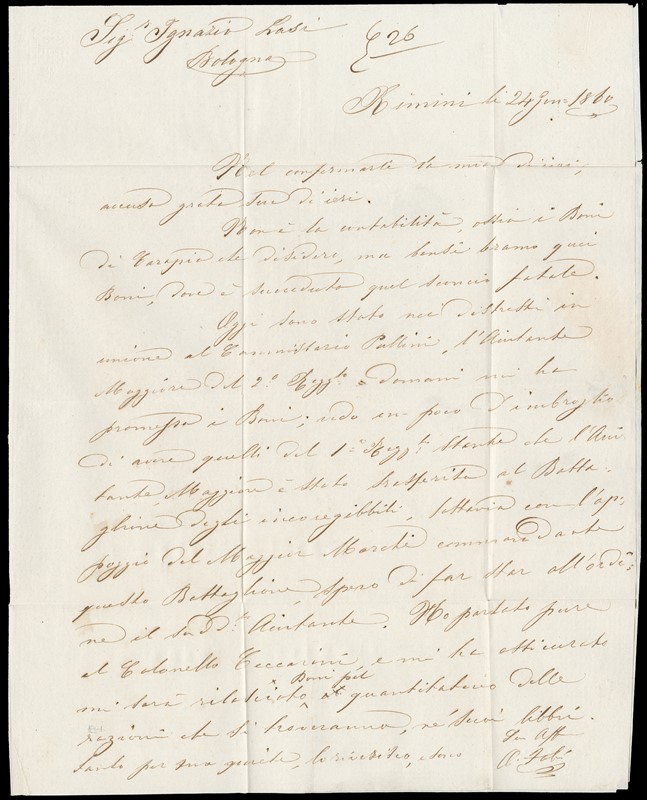 Sigr. Ignazio Lasi
26
Bologna
Rimini li 24 Gen. 1860
Nel confermarle la mia di ieri,
accuso grata Sua di ieri.
Non è la contabilità, ossia i Boni
di che disidero, ma bensì bramo quei
Boni, dove è succeduto quel sconcio fatale.
Oggi sono stato nei distretti in
unione al Commissario Pallini, l'Aiutante
Maggiore del 2.o Reggto. e domani mi ha
promesso i Boni; vedo un poco d'imbroglio
di avere quelli del 1.o Reggto. stante che l'Aiu-
tante Maggiore è stato trasferito al Batta-
glione degli incoregibbili, tuttavia con l'ap-
poggio del Maggior Marchi commandante
questo Battaglione, spero di far star all'ordi-
ne il sudd.o Aiutante. Ho parlato pure
al Colonello Ceccarini, e mi ha assicurato
Boni pel
mi sarà rilasciato quantitativo delle
razioni che si troveranno,
per sua quiete, lo riverisco, e sono
Suo Aff
A.